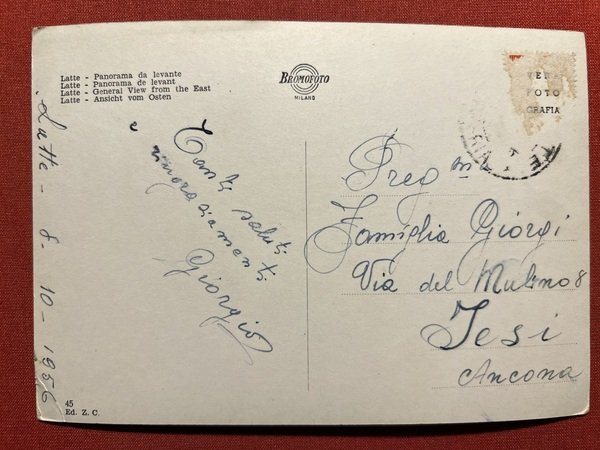 Latte - Panorama da levante
Latte - Panorama de levant
Latte - General View from the East
Latte - Ansicht vom Osten
BROMOFOTO
MILANO
VERA
FOTO
GRAFIA
Latte - 8 - 10 - 1956
Tanti saluti
e ringraziamenti
Giorgio
Preg mi
Famiglia Giorgi
Via del Mulino 8
Jesi
Ancona
45
Ed. Z. C.